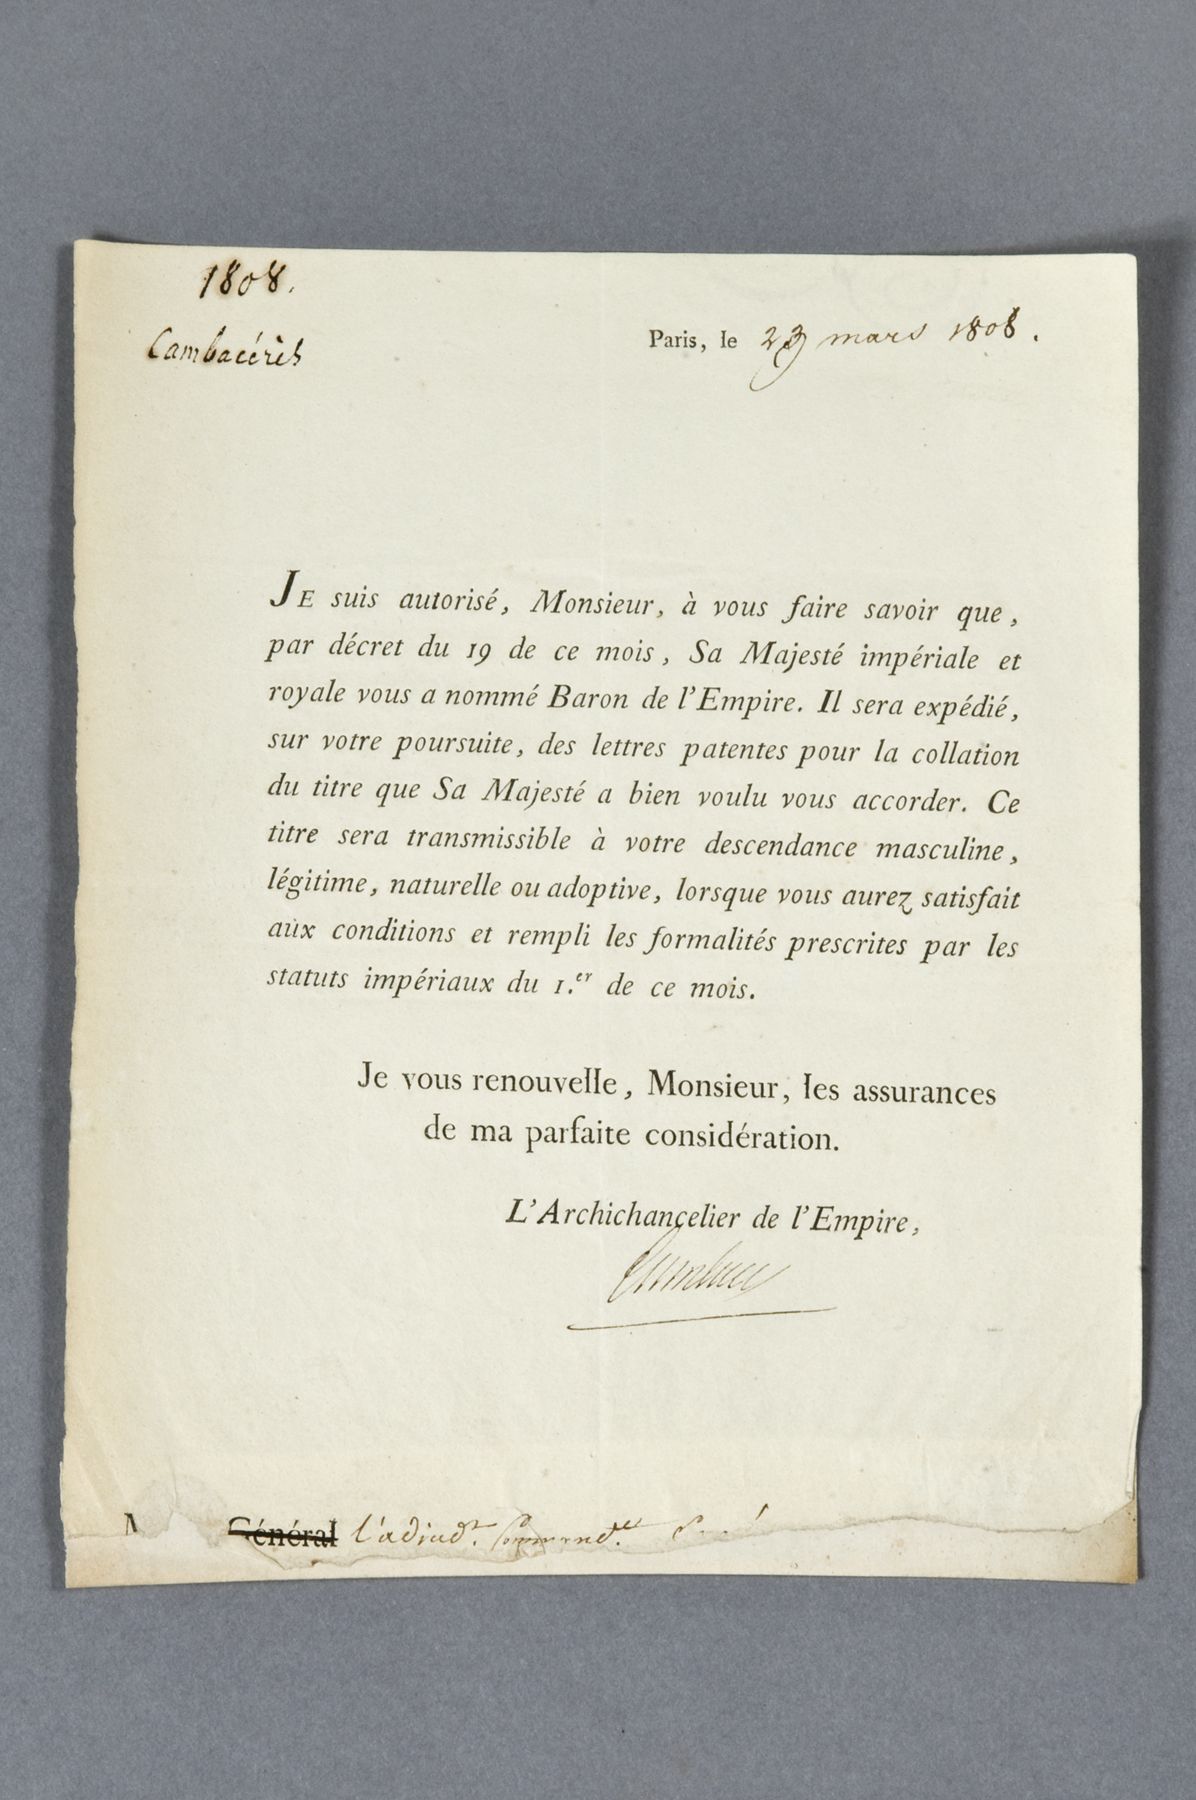 1808.
Cambacérès
Paris, le 23 mars 1808.
JE suis autorisé, Monsieur, à vous faire savoir que,
par décret du 19 de ce mois, Sa Majesté impériale et
royale vous a nommé Baron de l'Empire. Il sera expédié,
sur votre poursuite, des lettres patentes pour la collation
du titre que Sa Majesté a bien voulu vous accorder. Ce
titre sera transmissible à votre descendance masculine,
légitime, naturelle ou adoptive, lorsque vous aurez satisfait
aux conditions et rempli les formalités prescrites par les
statuts impériaux du 1.er de ce mois.
Je vous renouvelle, Monsieur, les assurances
de ma parfaite considération.
L'Archichancelier de l'Empire,
M Général l'adjud.t Command.t